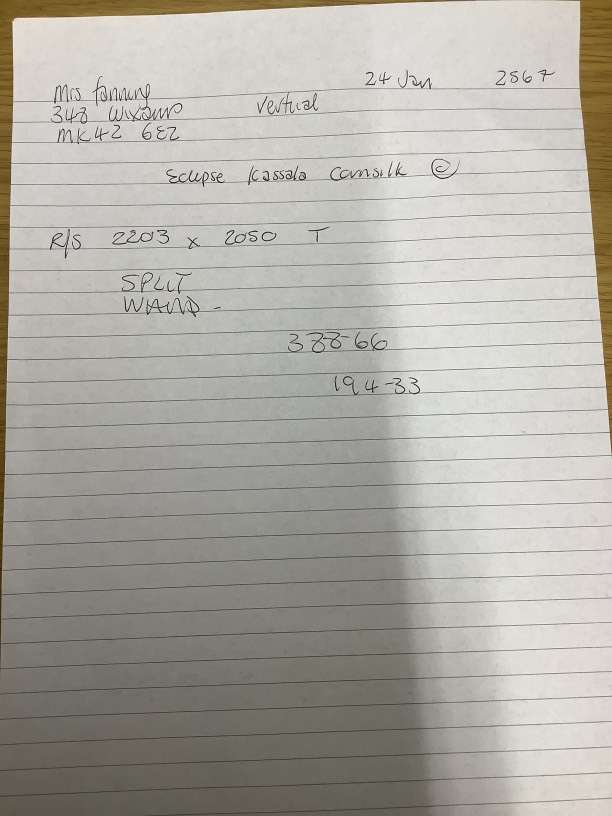 24 Jan 2567
Mrs Fanning
348 Wixams Vertical
MK42 6EZ
Eclipse Kassala Cornsilk ©
R/S 2203 x 2050 T
SPLIT
WAND -
388-66
194-33